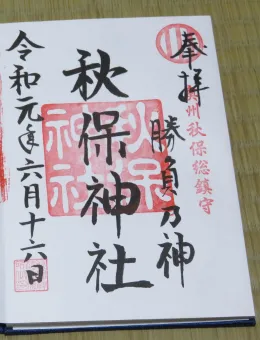 奉拝
奥州秋保総鎮守
勝負乃神
秋保神社
秋保
神社
令和元年六月十六日